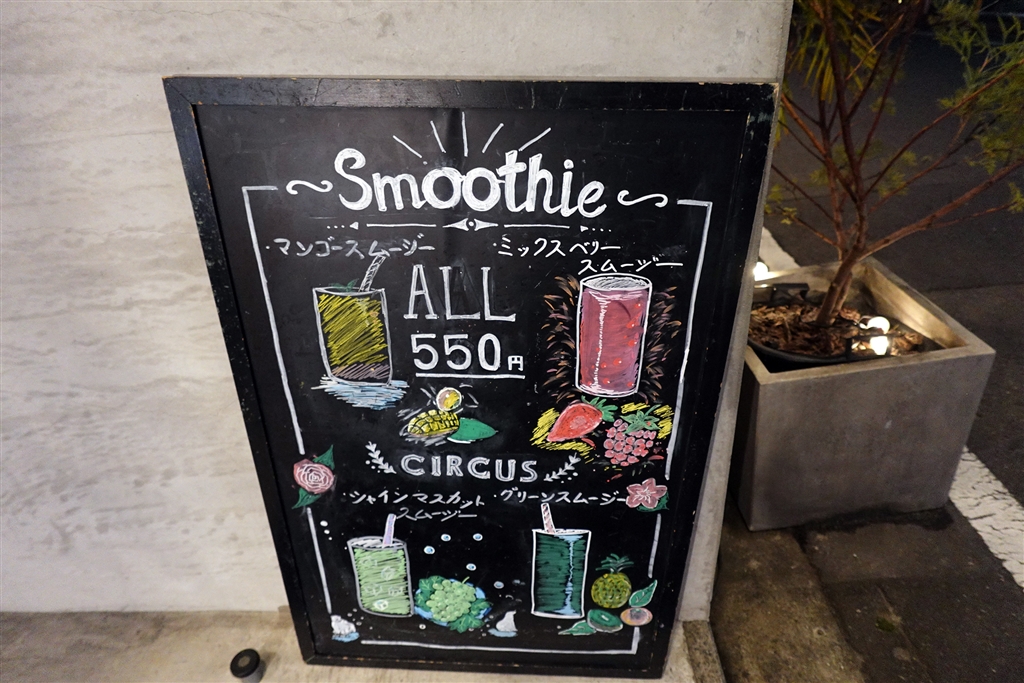 Smoothie
・マンゴースムージー
・ミックスベリー
スムージー
ALL
550円
CIRCUS
・シャインマスカット
スムージー
・グリーンスムージー